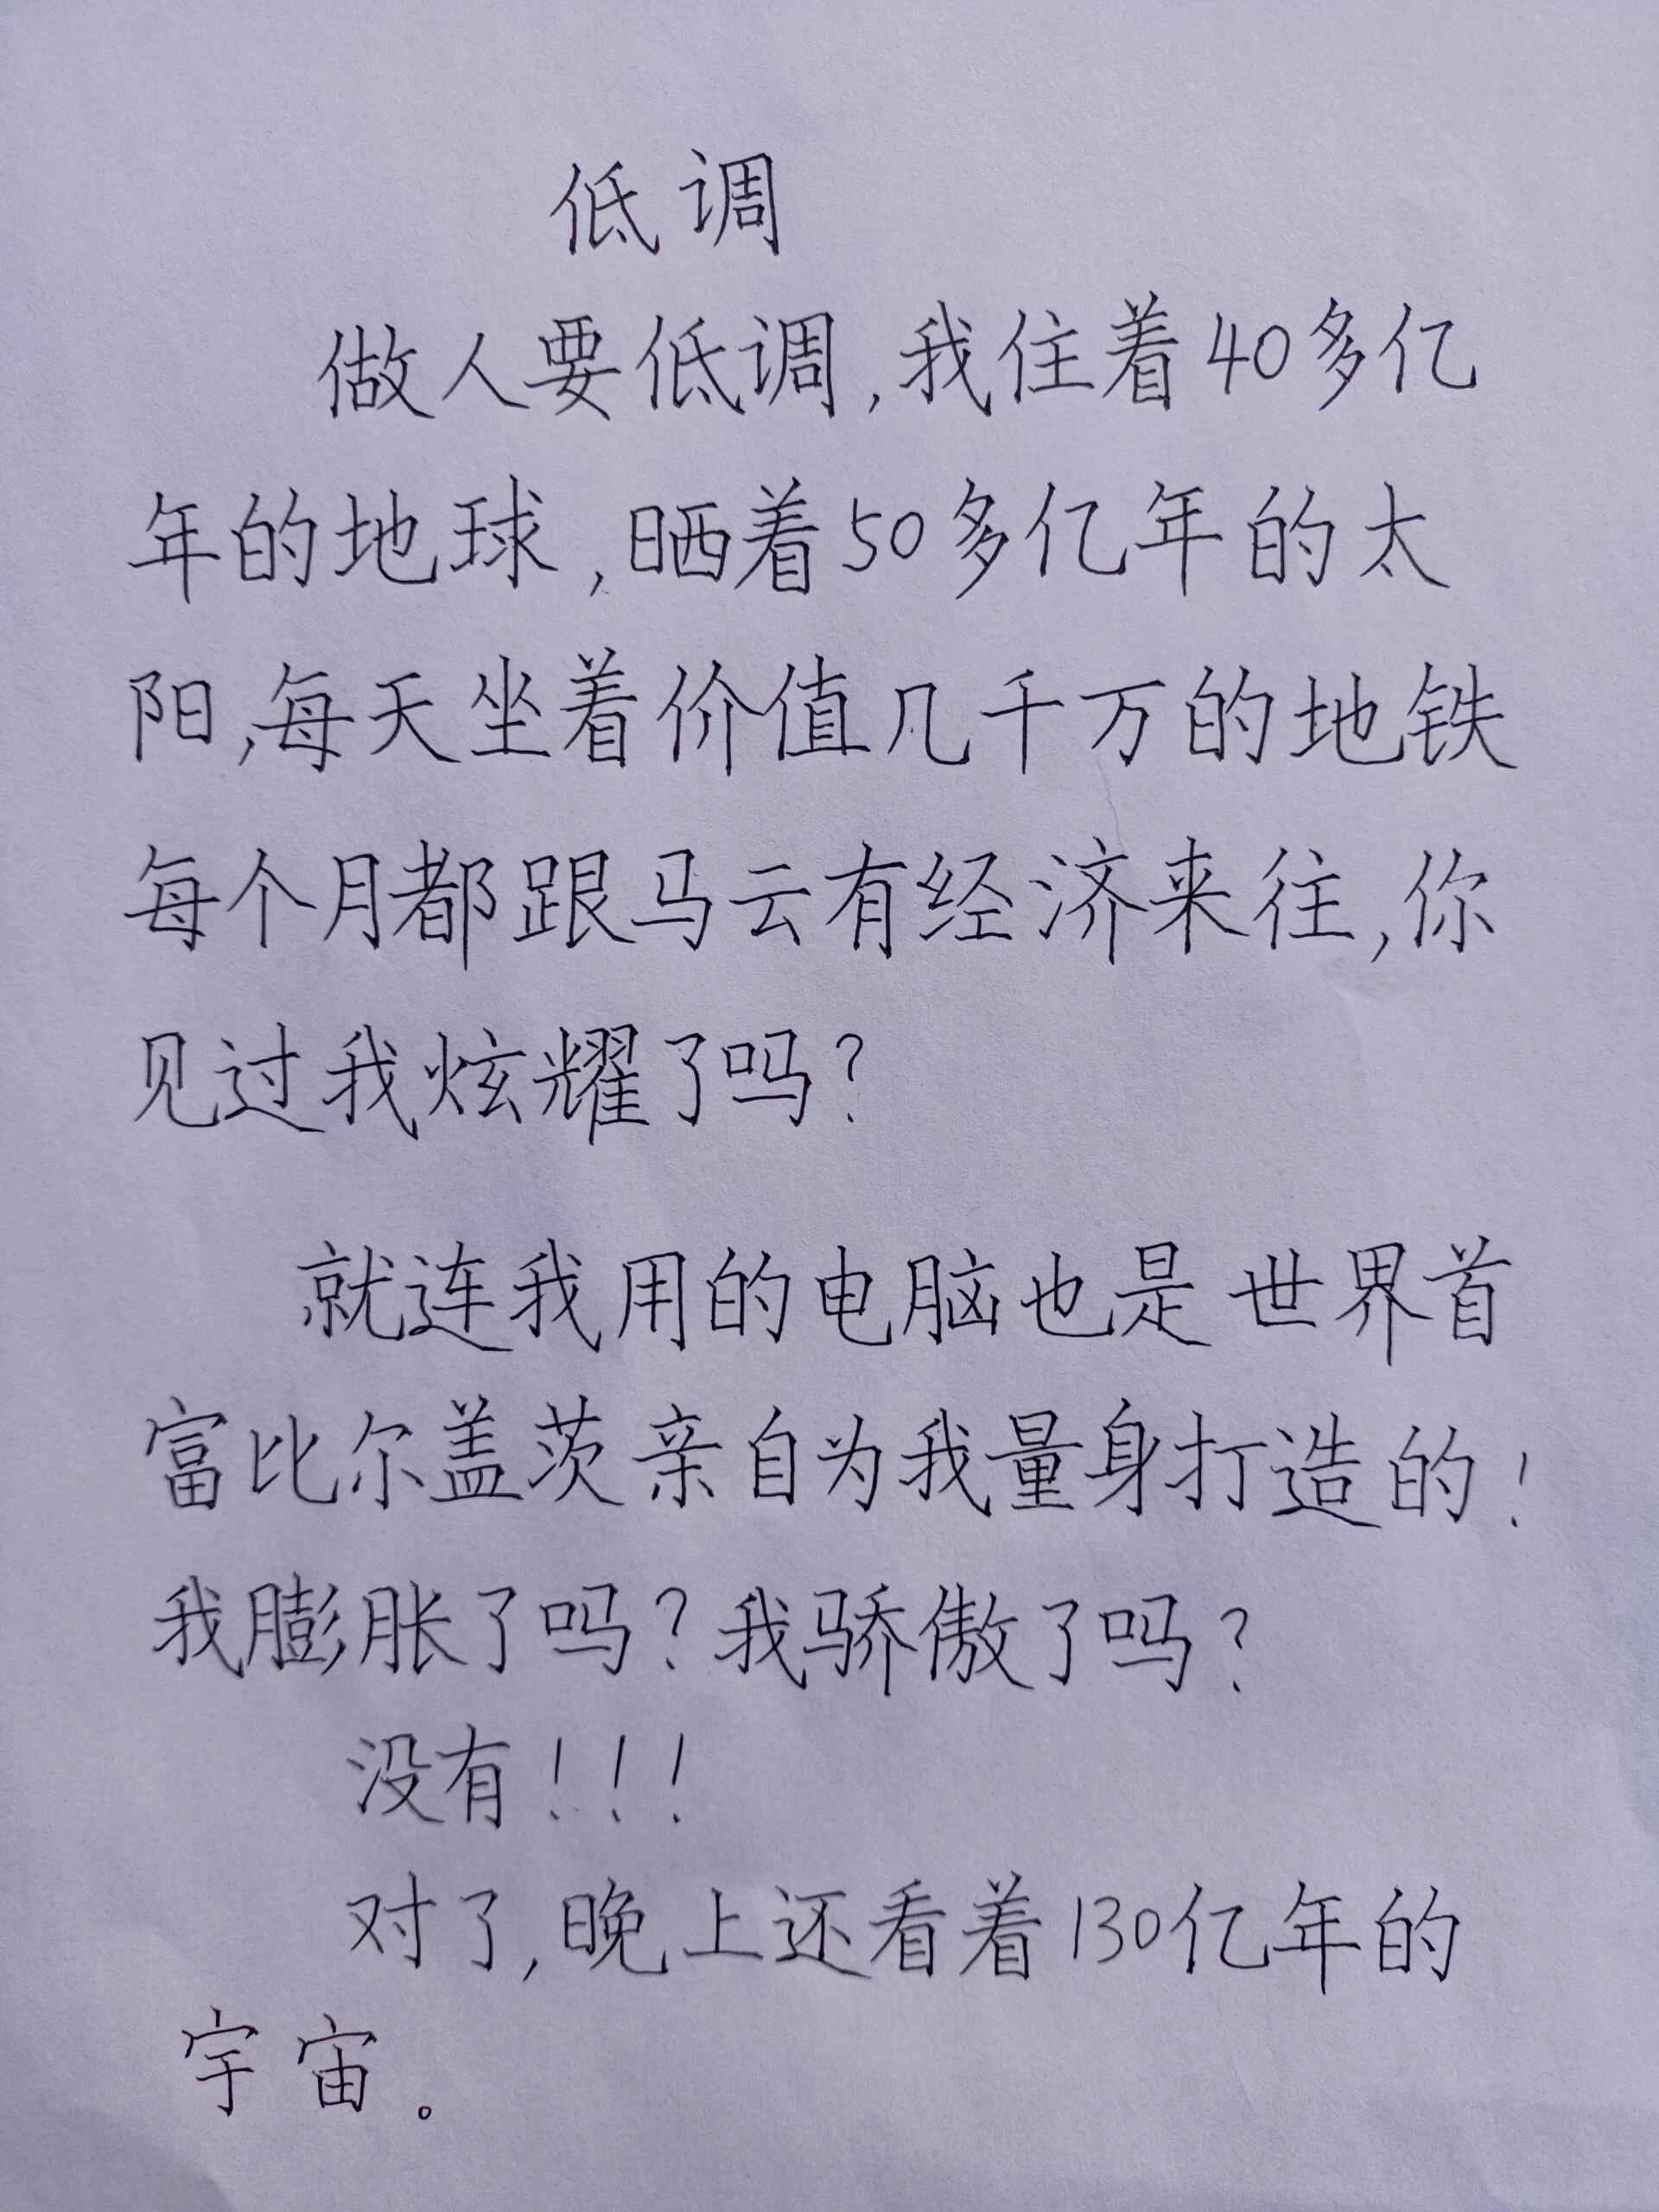 低调
做人要低调,我住着40多亿
年的地球,晒着50多亿年的太
阳,每天坐着价值几千万的地铁
每个月都跟马云有经济来往,你
见过我炫耀了吗?
就连我用的电脑也是世界首
富比尔盖茨亲自为我量身打造的!
我膨胀了吗?我骄傲了吗?
没有!!!
对了,晚上还看着130亿年的
宇宙。